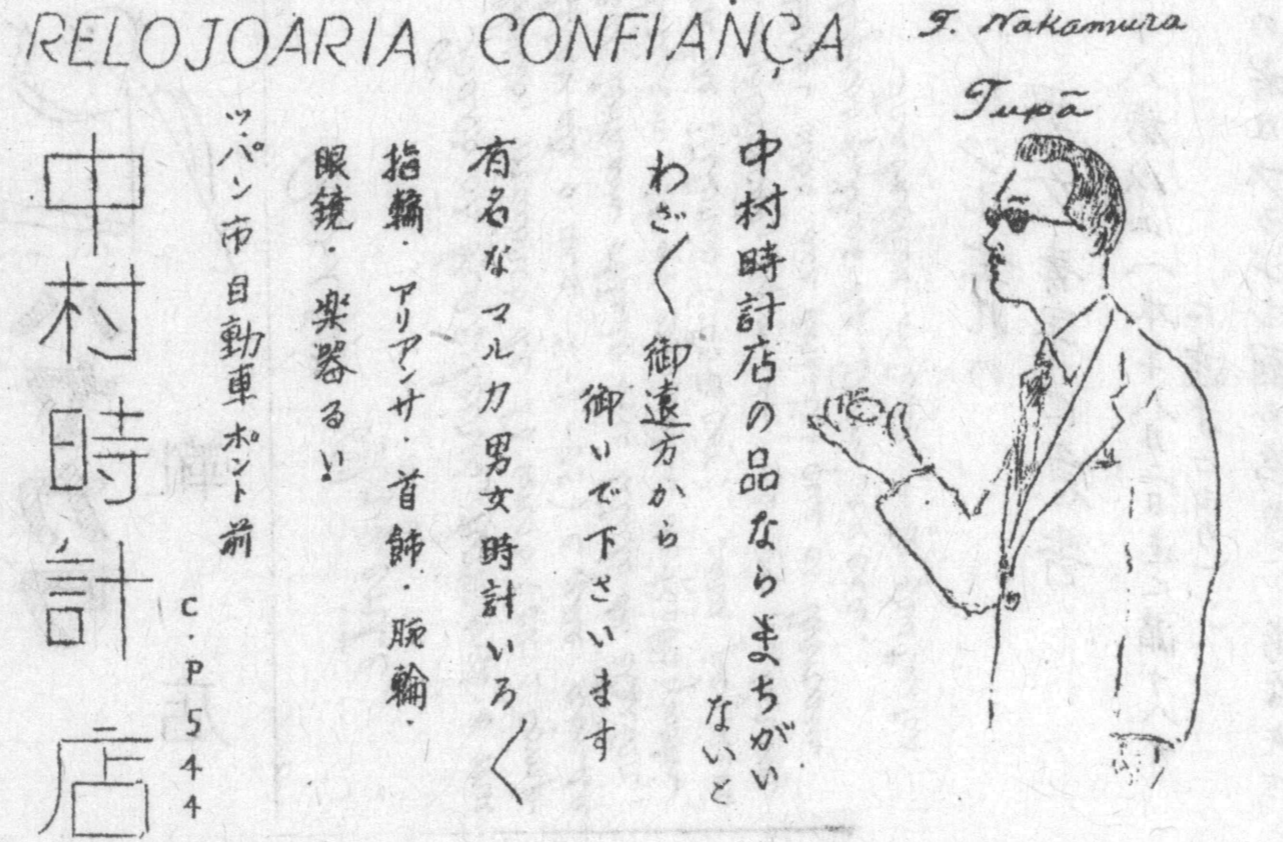 RELOJOARIA CONFIANÇA
T. Nakamura
Tupã
中村時計店の品ならまちがい
ないと
わざ〱御遠方から
御いで下さいます
有名なマルカ男女時計いろ〱
指輪・アリアンサ・首飾・腕輪・
眼鏡・楽器るい
ツパン市自動車ポント前
C.P544
中村時計店